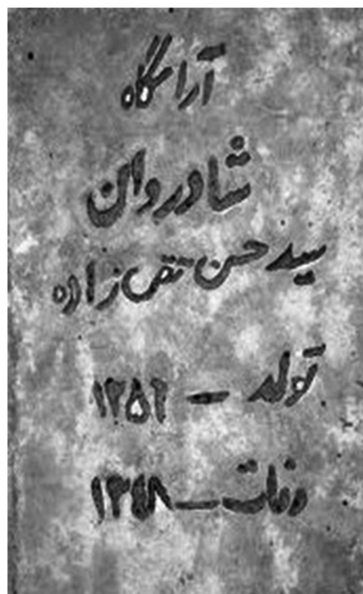 آرامگاه
شادروان
سید حسن تقی زاده
تولد – ۱۲۵۶
وفات – ۱۳۴۸